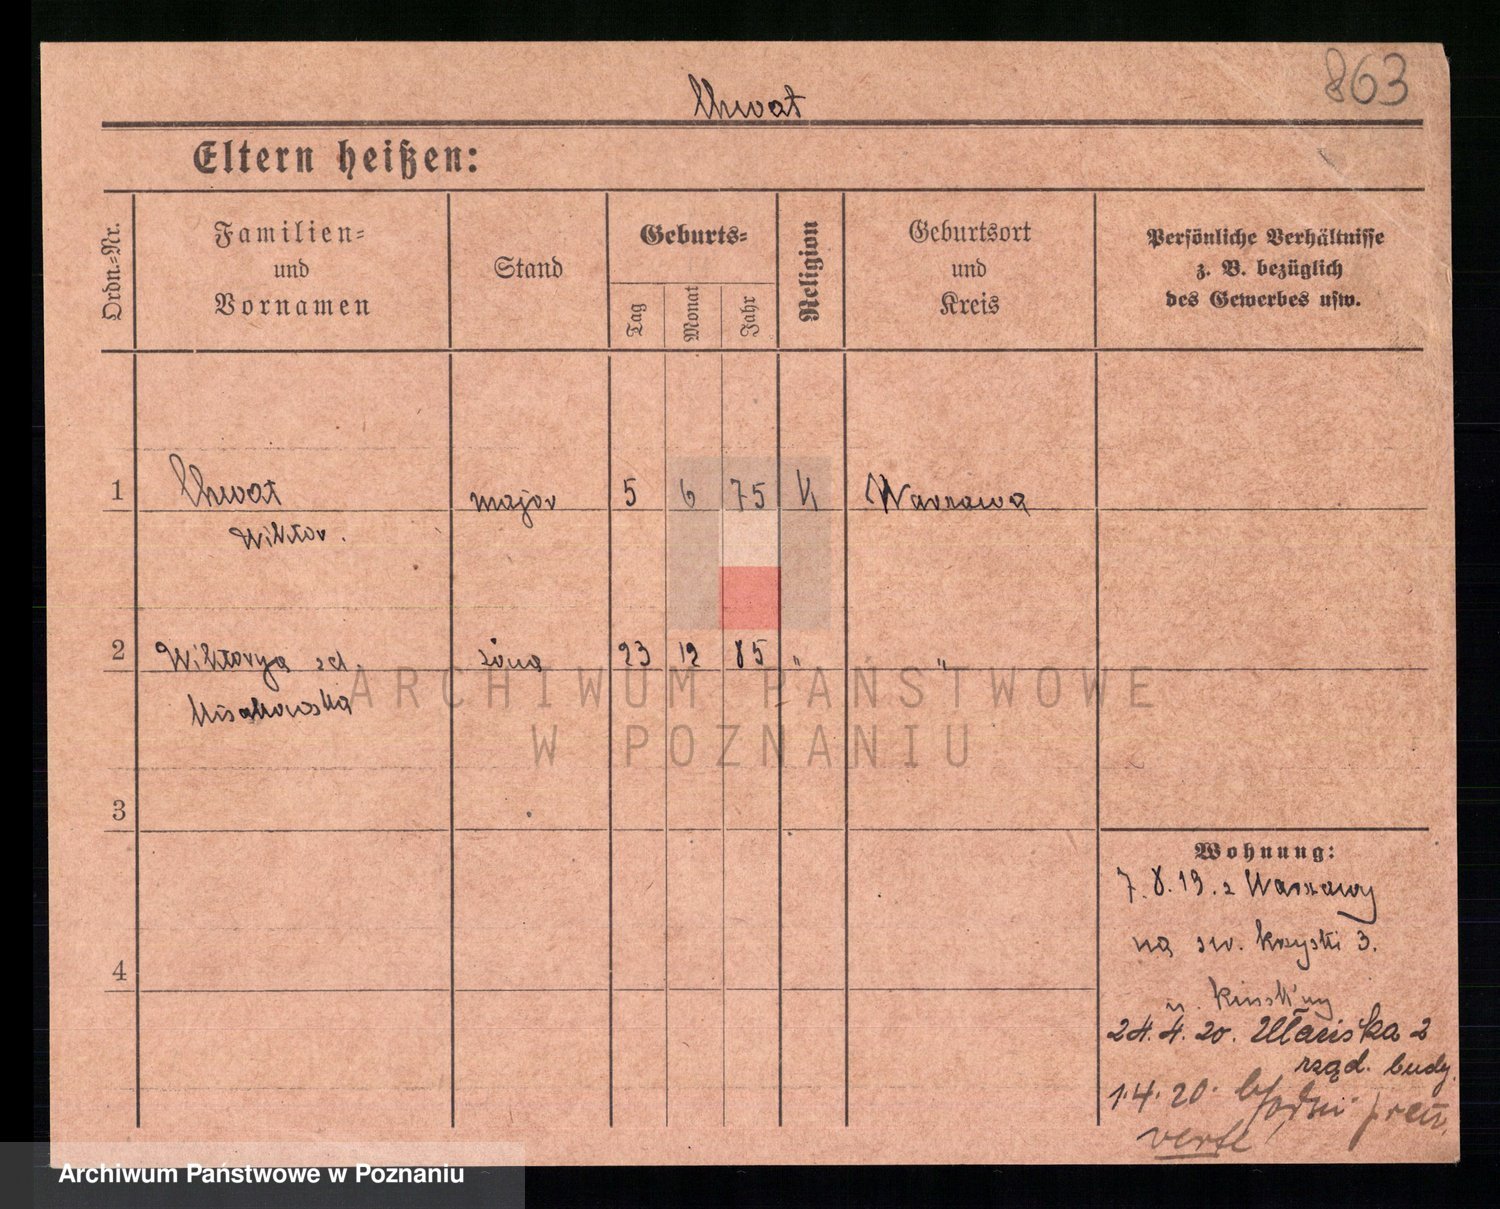 863
Chwat
Eltern heißen:
Ordn.=Nr.
Familien=
und
Vornamen
Stand
Geburts=
Tag
Monat
Jahr
Religion
Geburtsort
und
Kreis
Persönliche Verhältnisse
z. B. bezüglich
des Gewerbes usw.
1 Chwat major 5 6 75 K Warszawa
Wiktor.
2 Wiktorya zd. żona 23 12 85 " "
3
4
Wohnung:
7.8.19. z Warszawy
na św. 3.
u.
24.4.20. Ułańska 2
rząd. budy.
1.4.20.
verte!
ARCHIWUM PAŃSTWOWE
W POZNANIU
Archiwum Państwowe w Poznaniu